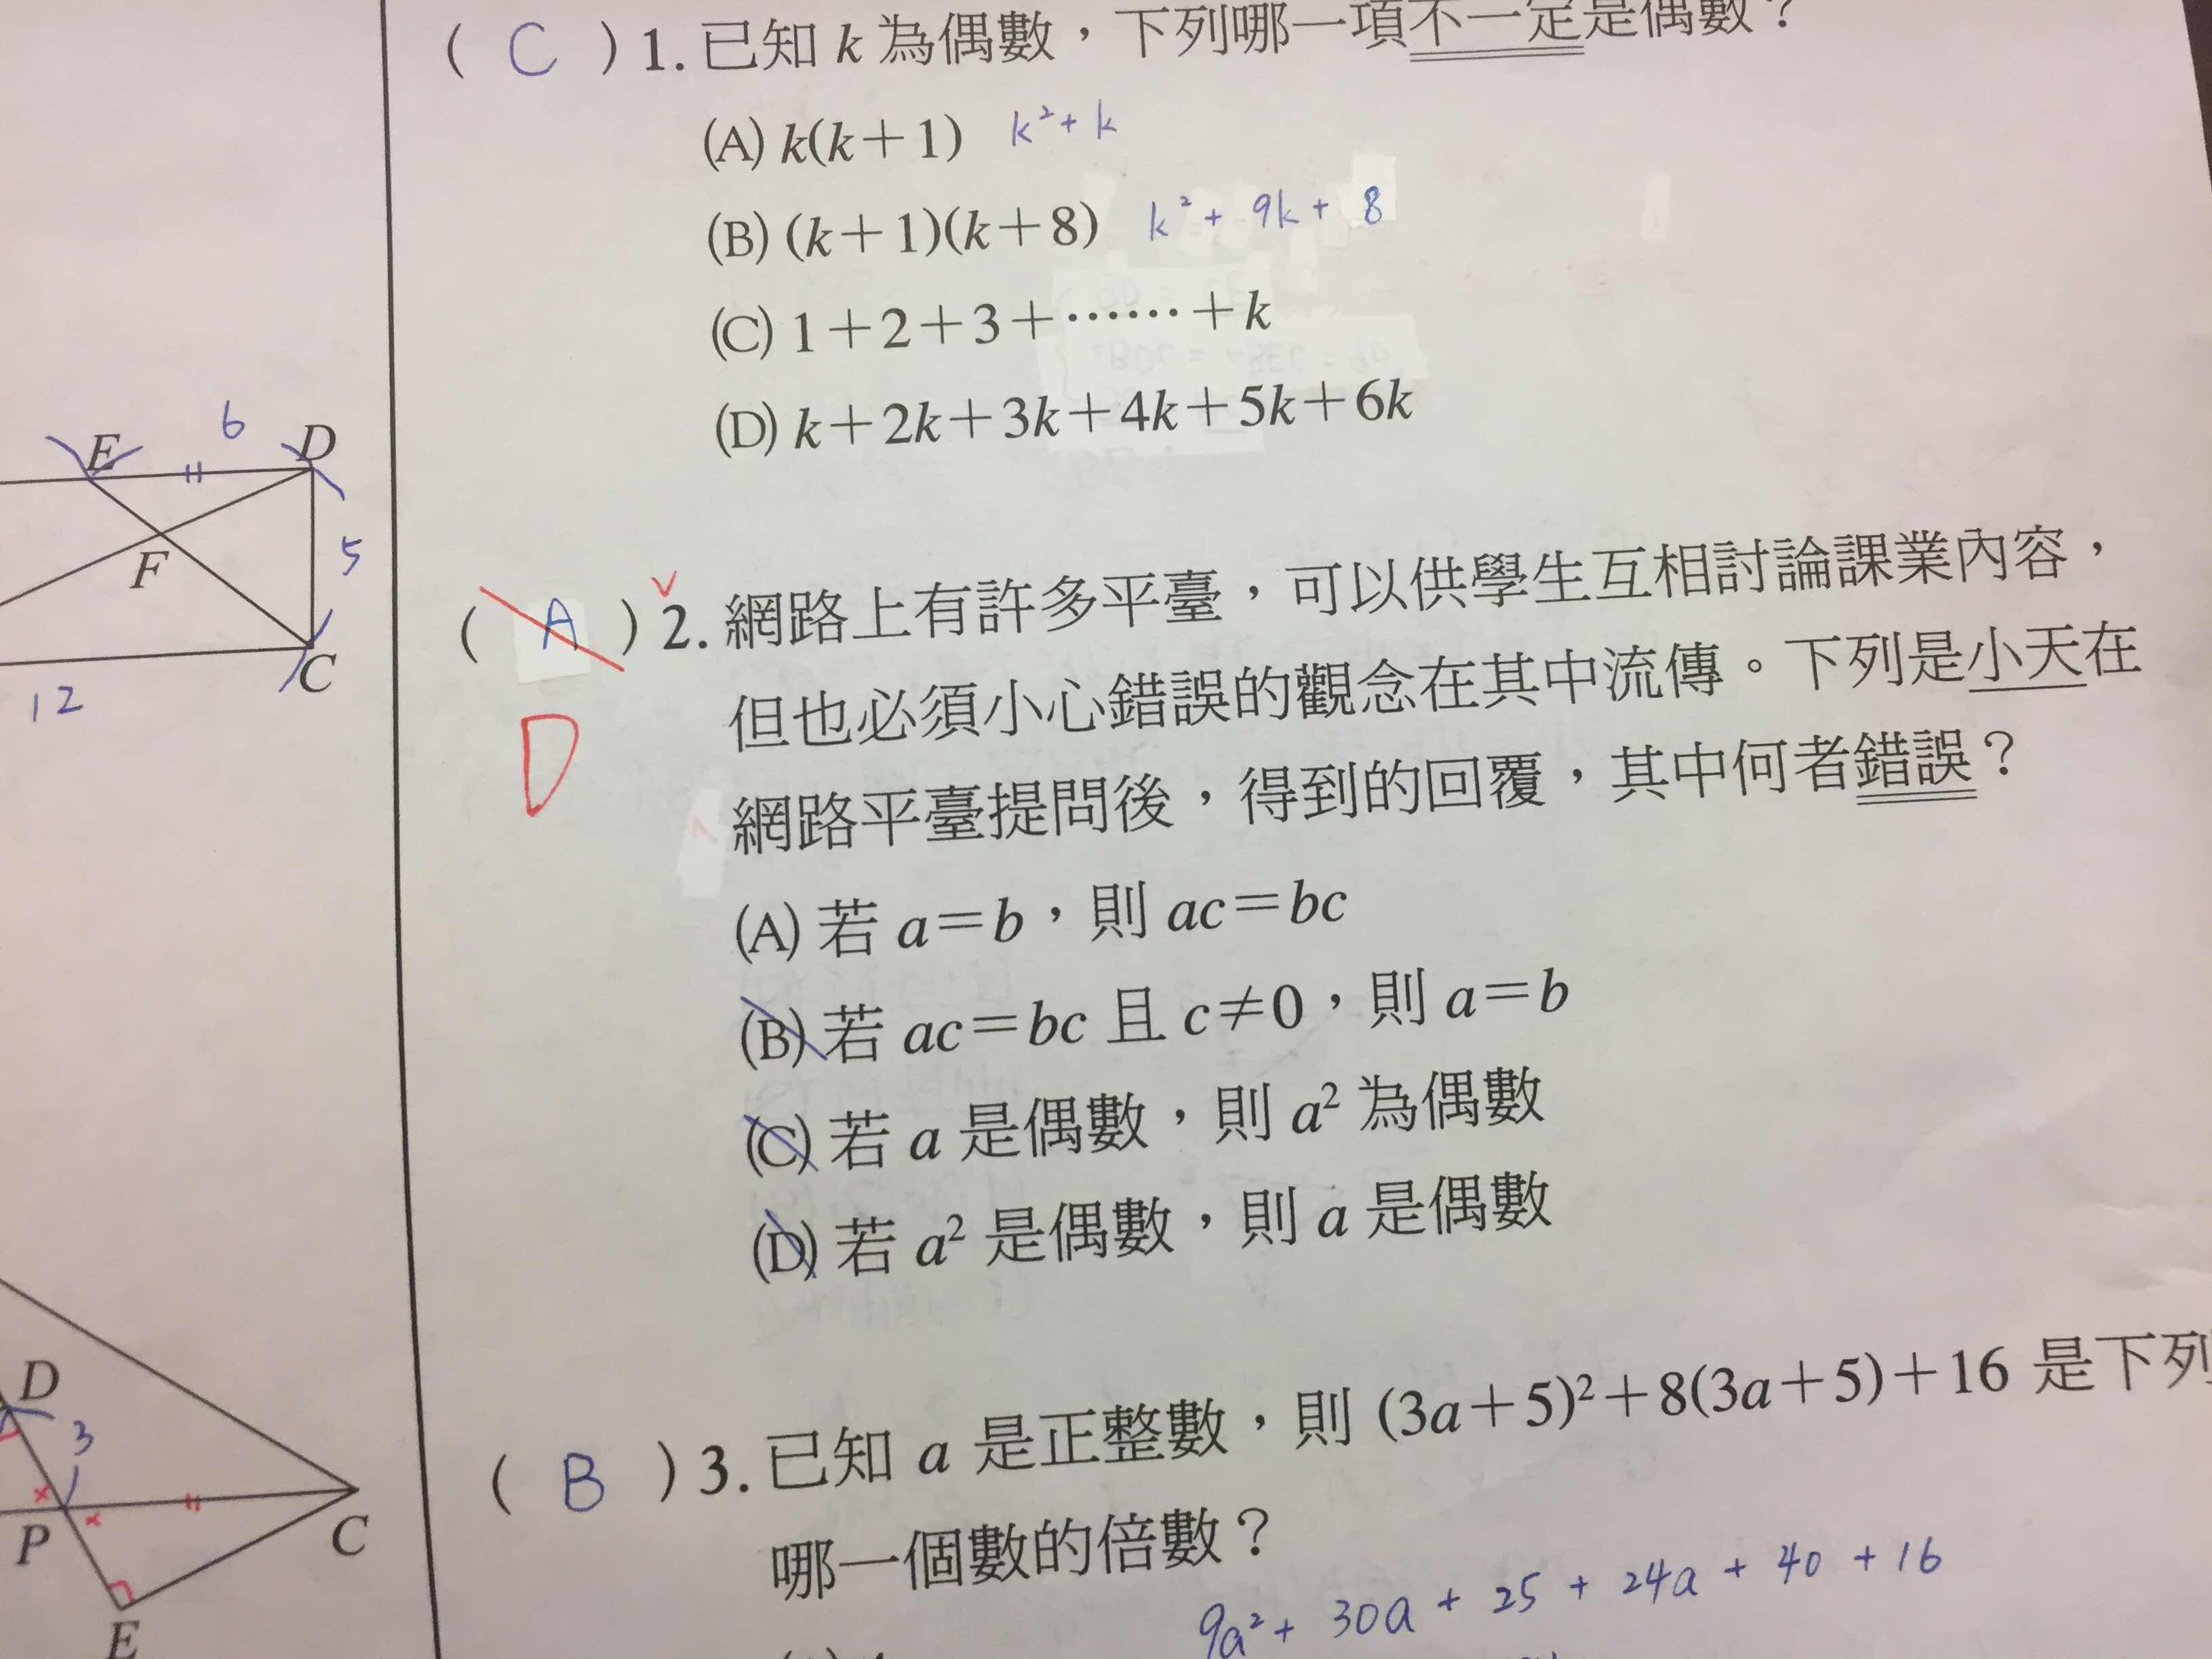 ( C ) 1. 已知 k 為偶數，下列哪一項不一定是偶數？
(A) k(k＋1) k²+k
(B) (k＋1)(k＋8) k²+9k+8
(C) 1＋2＋3＋……＋k
(D) k＋2k＋3k＋4k＋5k＋6k
( A ) 2. 網路上有許多平臺，可以供學生互相討論課業內容，
D
但也必須小心錯誤的觀念在其中流傳。下列是小天在
網路平臺提問後，得到的回覆，其中何者錯誤？
(A) 若 a＝b，則 ac＝bc
(B) 若 ac＝bc 且 c≠0，則 a＝b
(C) 若 a 是偶數，則 a² 為偶數
(D) 若 a² 是偶數，則 a 是偶數
( B ) 3. 已知 a 是正整數，則 (3a＋5)²＋8(3a＋5)＋16 是下列
哪一個數的倍數？
9a²+30a+25+24a+40+16
E 6 D
F 5
12 C
D
3
P C
E